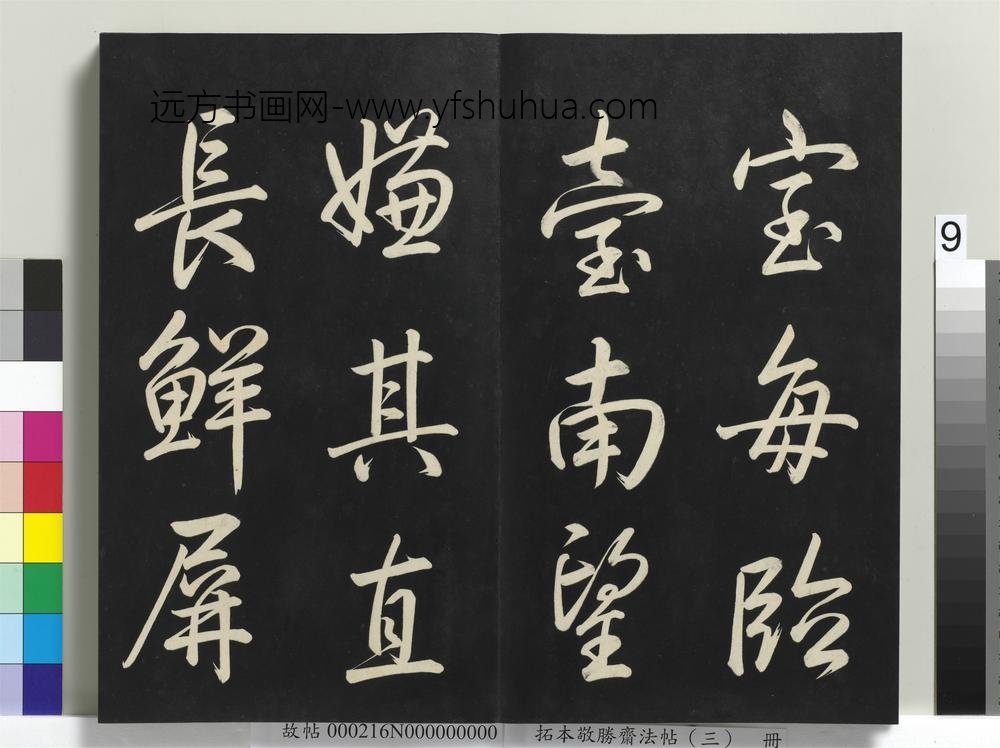 远方书画网-www.yfshuhua.com
室每臨
臺南望
嫌其直
長鮮屏
9
故帖 000216N000000000 拓本敬勝齋法帖(三) 冊